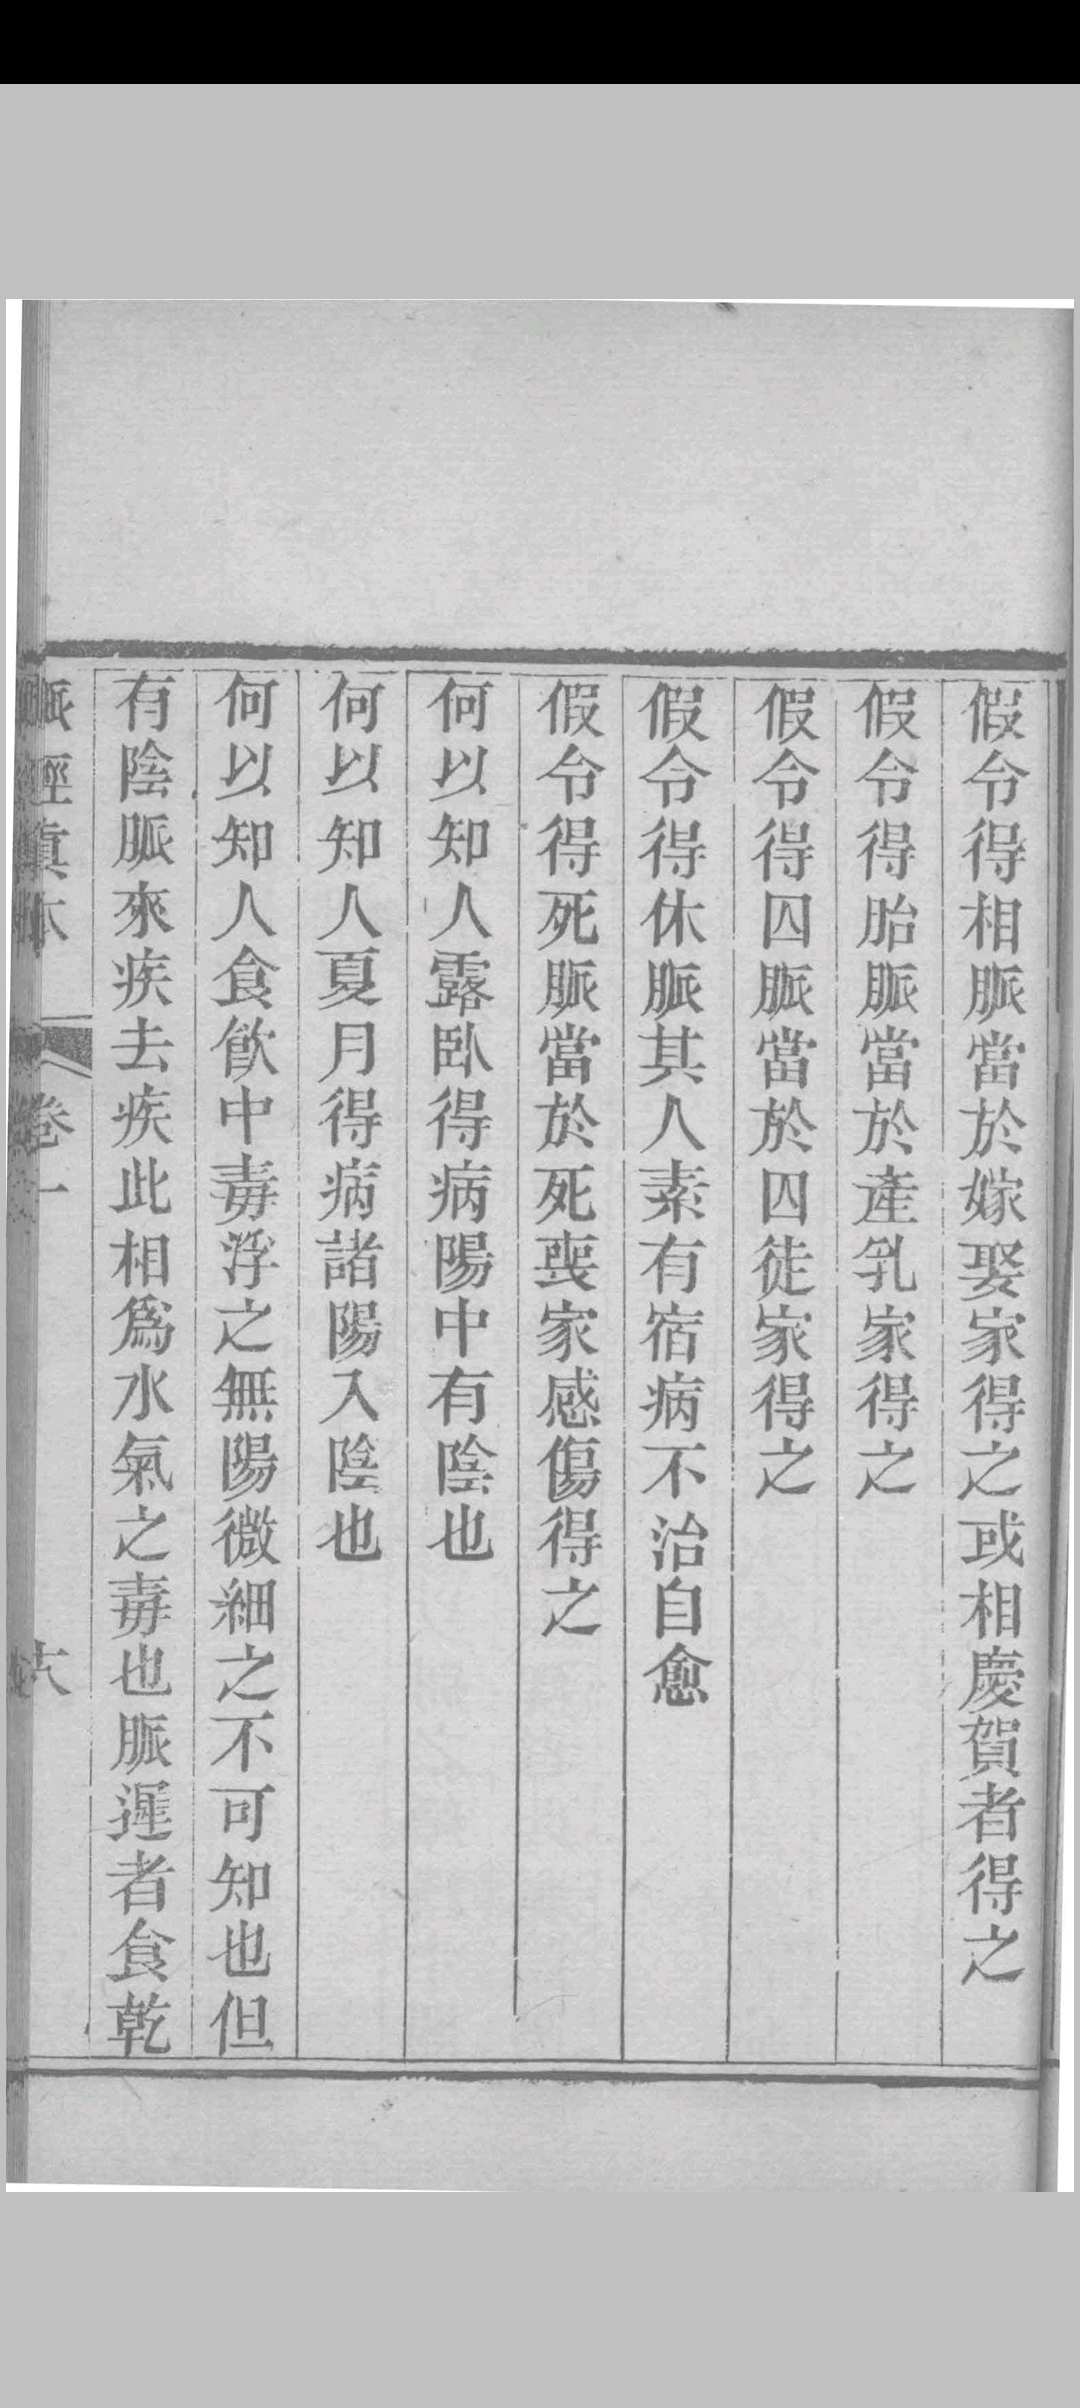 假令得相脈當於嫁娶家得之或相慶賀者得之
假令得胎脈當於產乳家得之
假令得囚脈當於囚徒家得之
假令得休脈其人素有宿病不治自愈
假令得死脈當於死喪家感傷得之
何以知人露臥得病陽中有陰也
何以知人夏月得病諸陽入陰也
何以知人食飲中毒浮之無陽微細之不可知也但
有陰脈來疾去疾此相為水氣之毒也脈遲者食乾
脈經真本 卷一 六